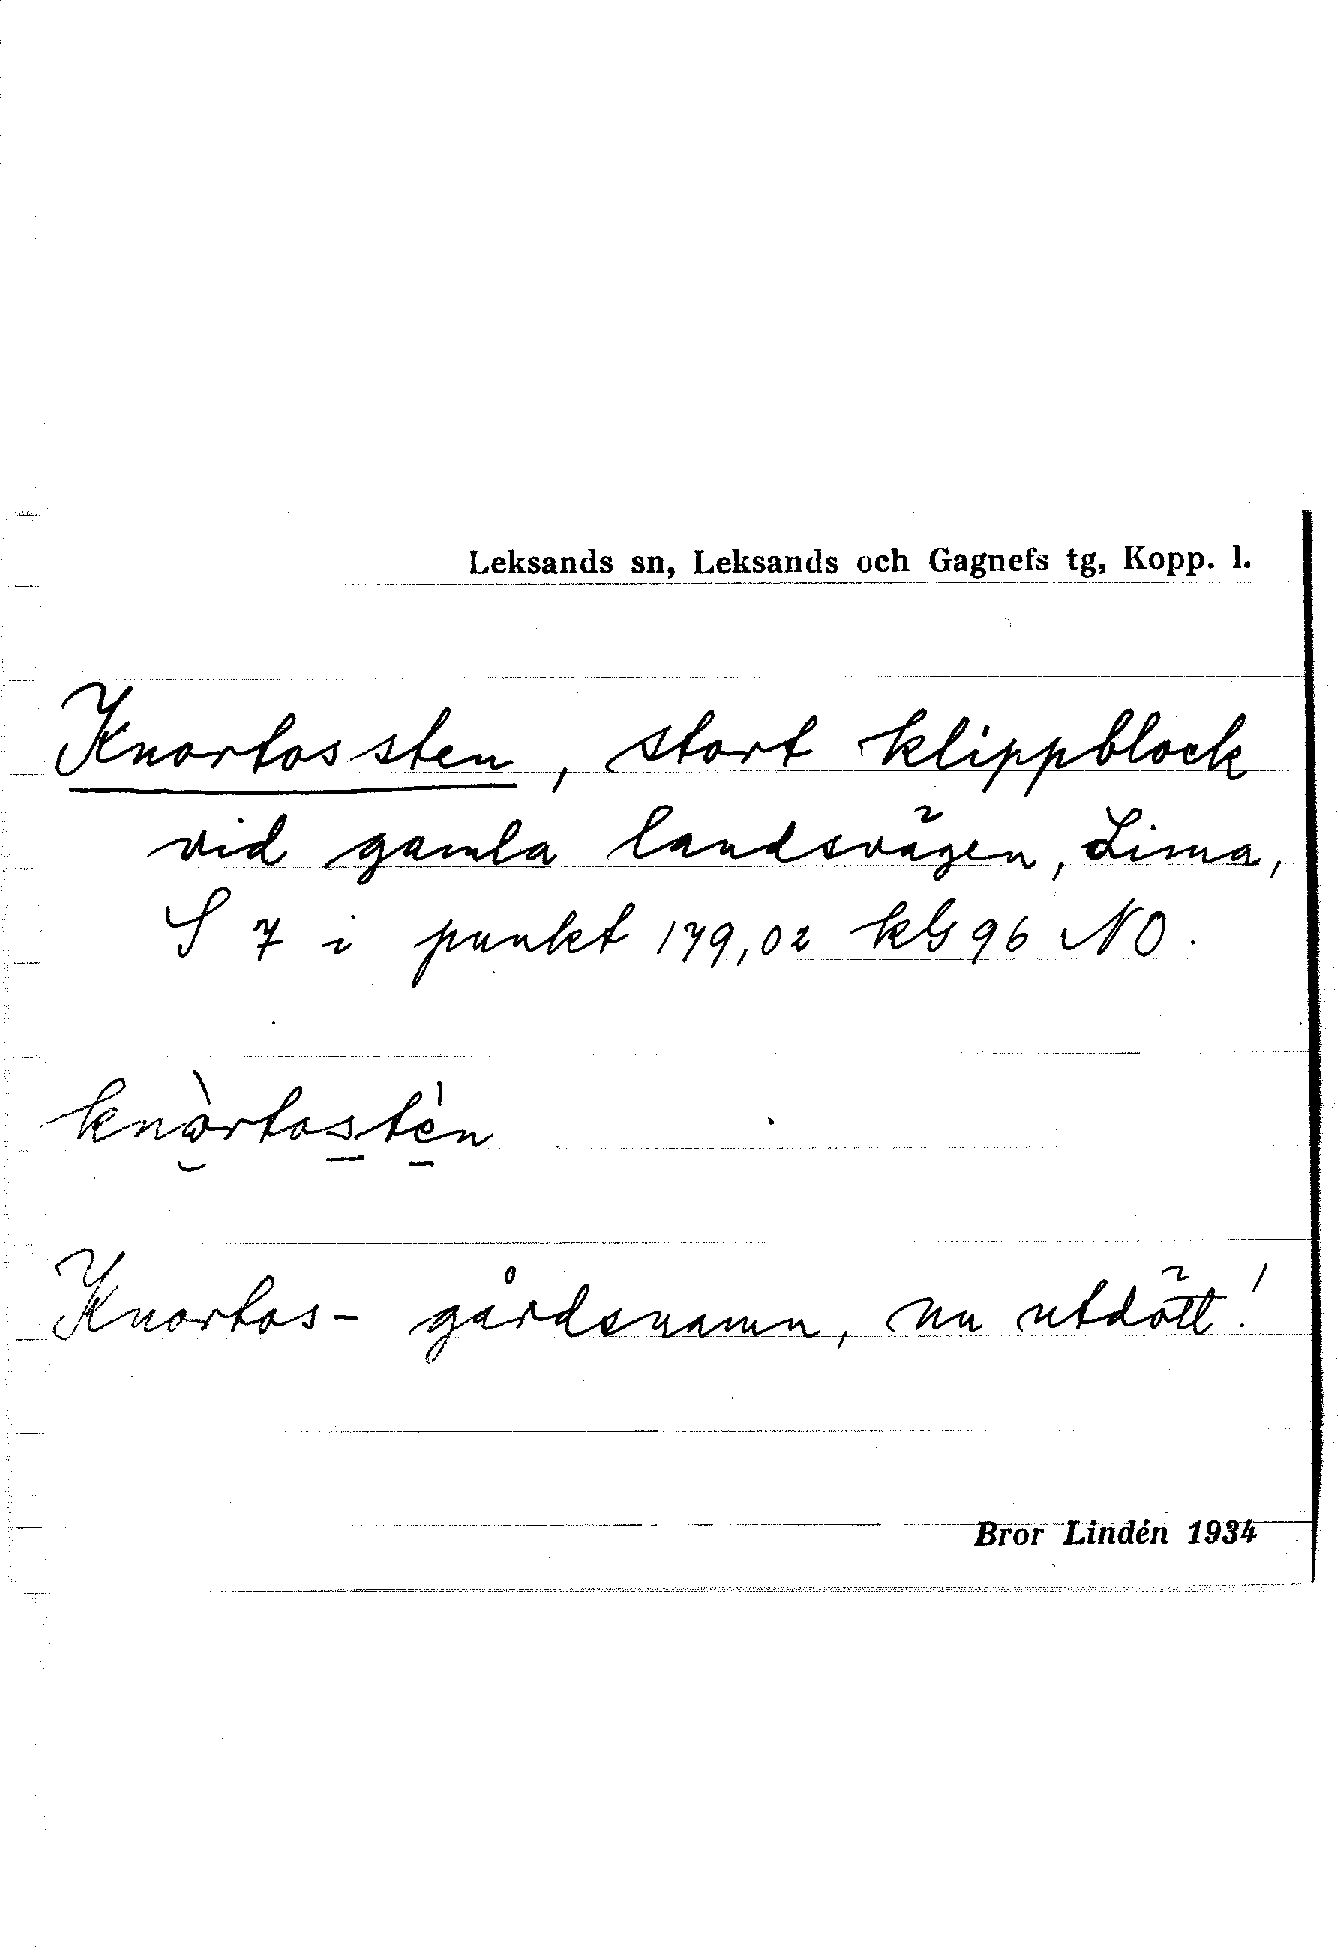 Leksands sn, Leksands och Gagnefs tg, Kopp. l.
Knortossten, stort klippblock
vid gamla landsvägen, Lima,
S 7 i punkt 179,02 kG 96 NO.
knòrtostén
Knortos- gårdsnamn, nu utdött!
Bror Lindén 1934